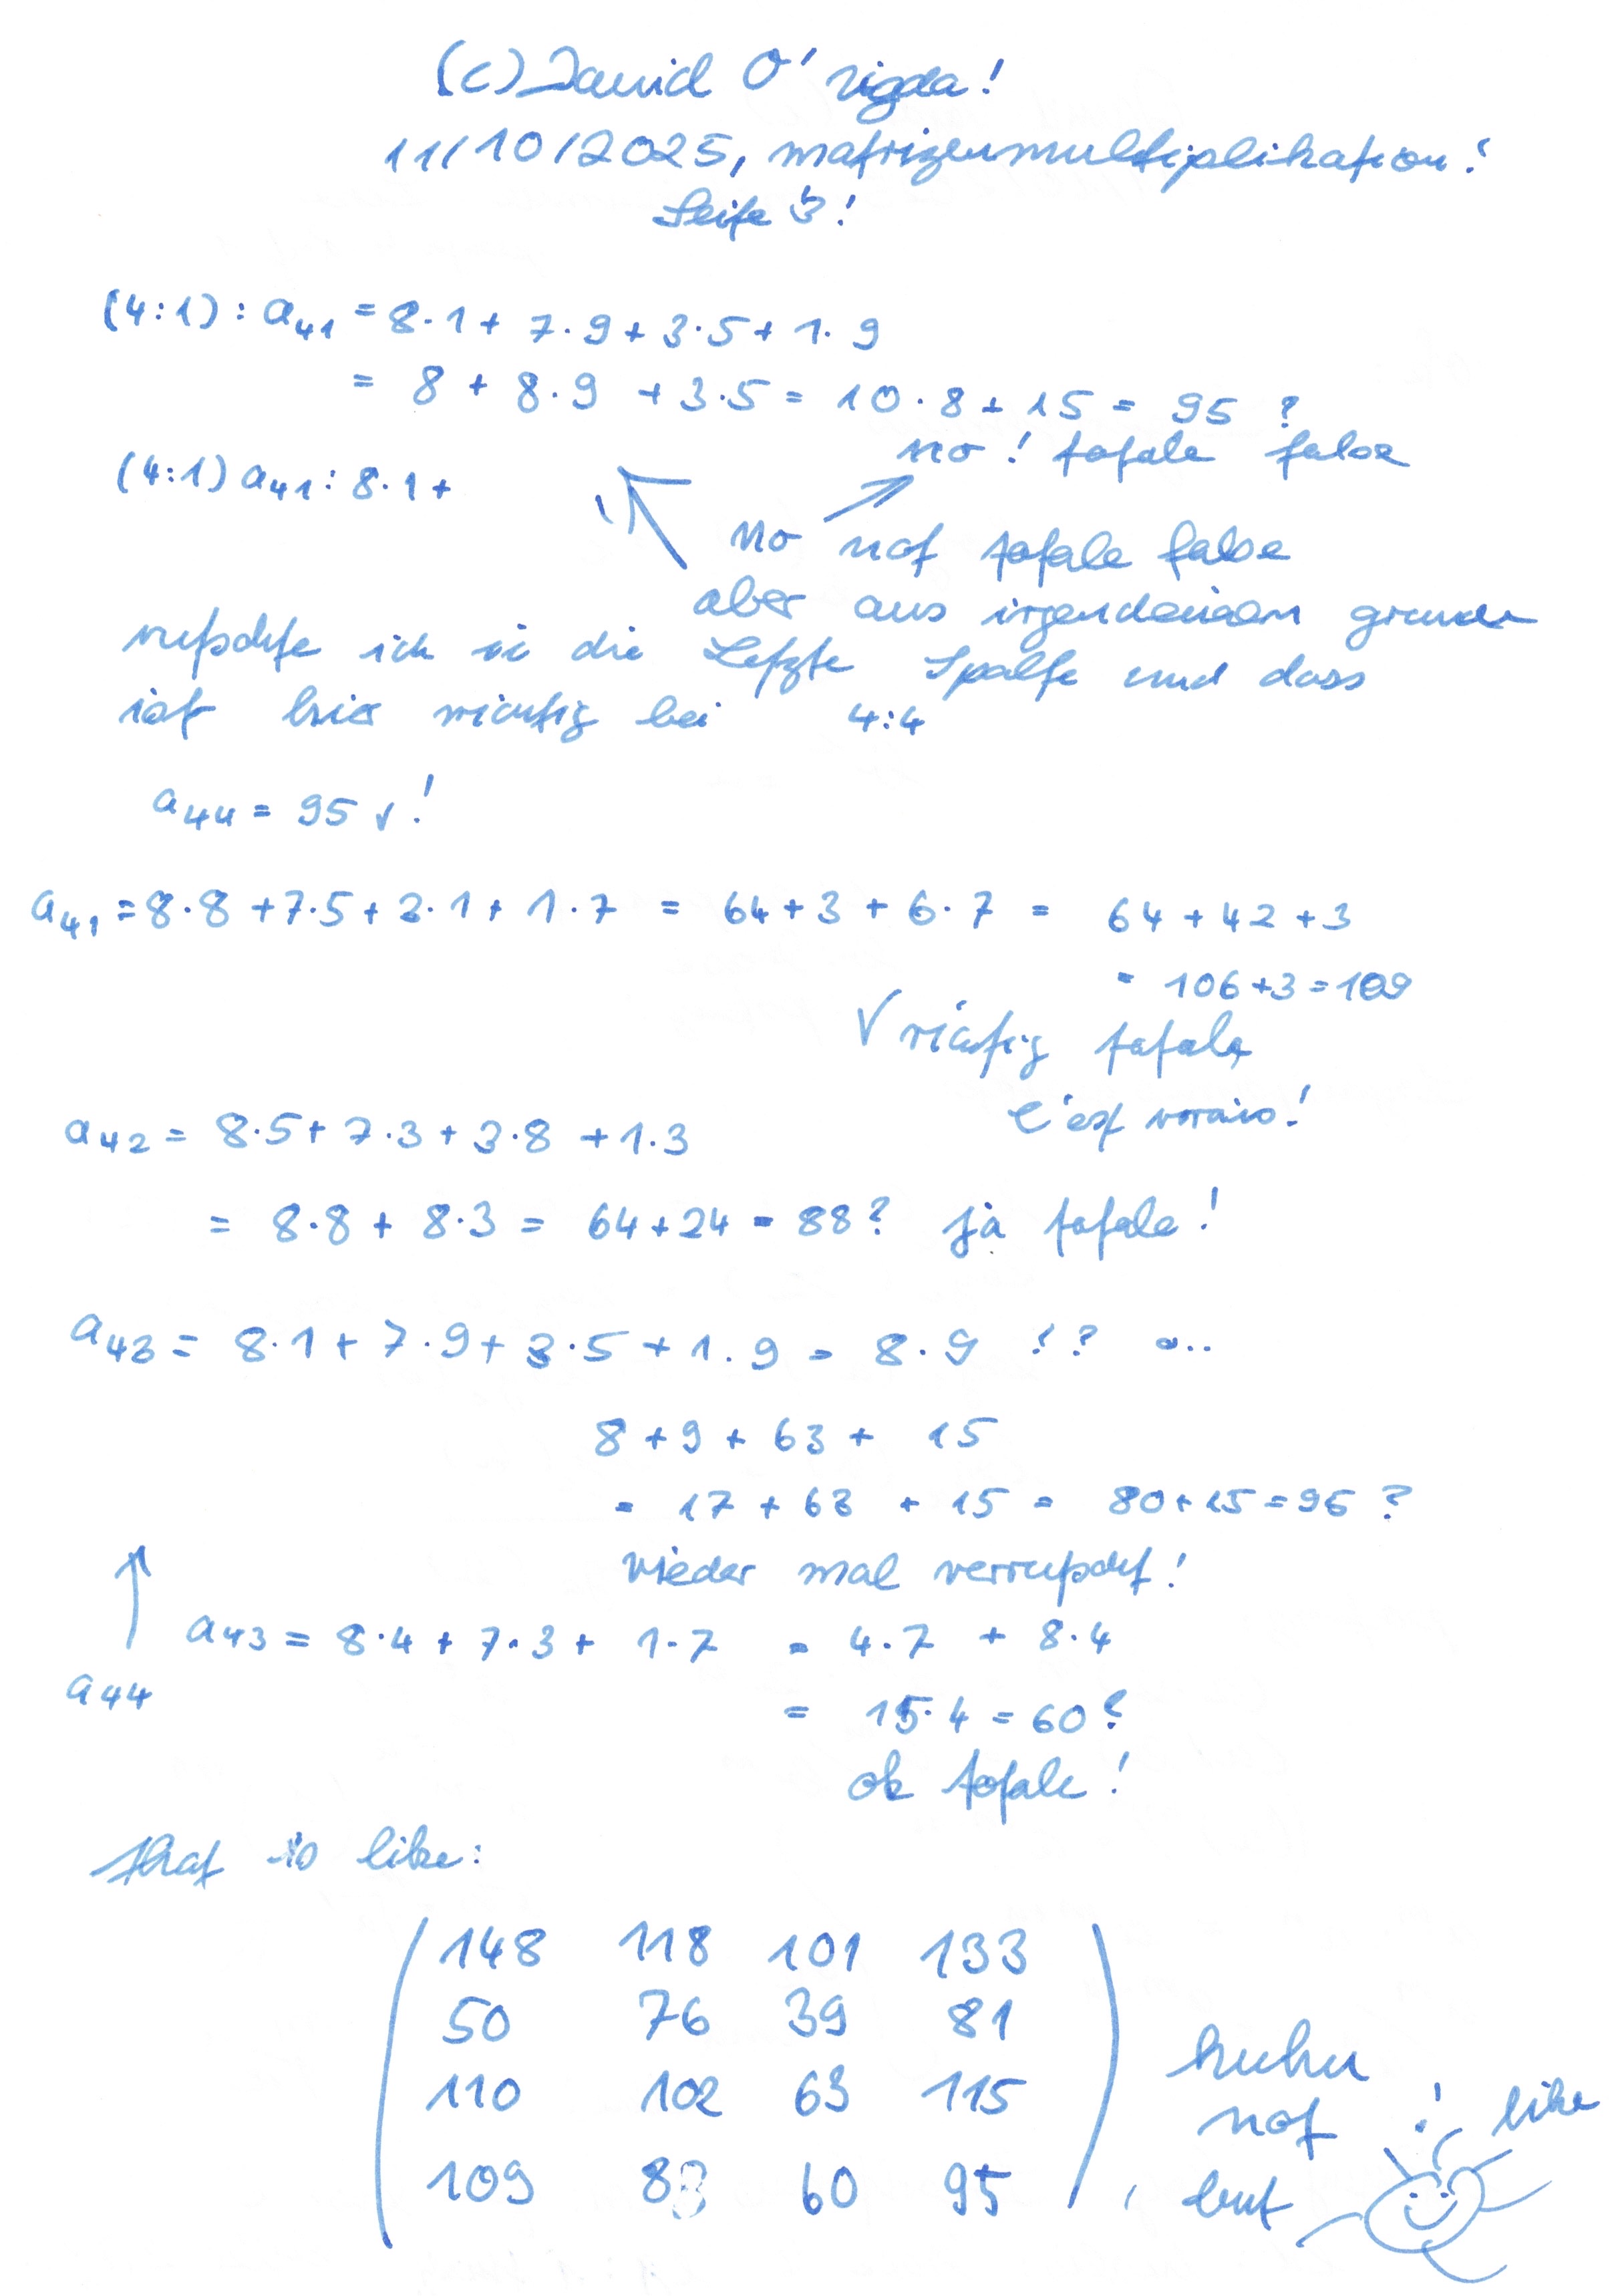 (c) David O' rigda!
11/10/2025, matrizenmultiplikation!
Seite 3!
(4:1) : a41 = 8·1 + 7·9 + 3·5 + 1·9
= 8 + 8·9 + 3·5 = 10·8 + 15 = 95 ?
no ! totale false
(4:1) a41 : 8·1 +
No not totale false
aber aus irgendeinem grunde
rutschte ich in die Letzte Spalte und dass
ist hier richtig bei 4:4
a44 = 95 √ !
a41 = 8·8 + 7·5 + 3·1 + 1·7 = 64 + 3 + 6·7 = 64 + 42 + 3
= 106 + 3 = 109
√ richtig totale
C'est vrais!
a42 = 8·5 + 7·3 + 3·8 + 1·3
= 8·8 + 8·3 = 64 + 24 = 88 ? ja totale !
a43 = 8·1 + 7·9 + 3·5 + 1·9 = 8·9 !? ...
8 + 9 + 63 + 15
= 17 + 63 + 15 = 80 + 15 = 95 ?
wieder mal verrutscht !
a43 = 8·4 + 7·3 + 1·7 = 4·7 + 8·4
a44
= 15·4 = 60 ?
ok totale !
that is like:
148 118 101 133
50 76 39 81
110 102 63 115
109 88 60 95
huhu
not ! like
but